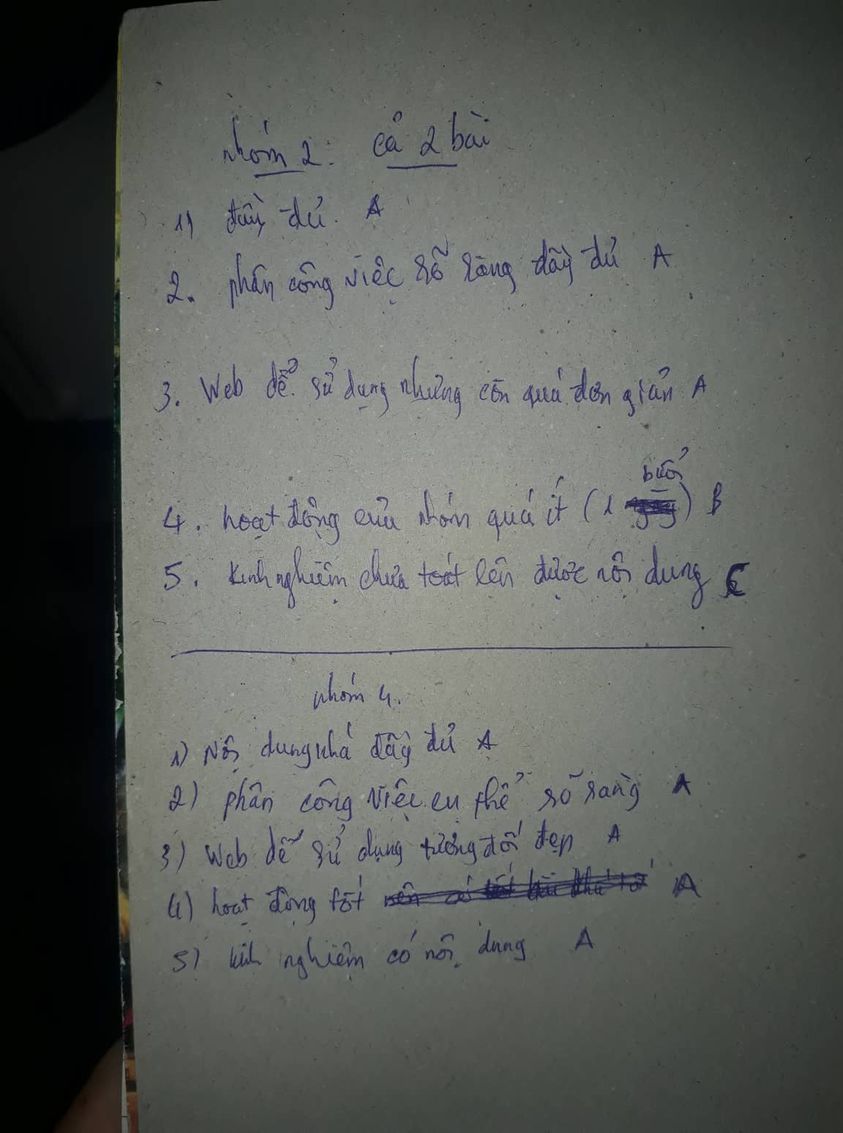 nhóm 2: cả 2 bài
1) đầy đủ. A
2. phân công việc rõ ràng đầy đủ A
3. Web dễ sử dụng nhưng còn quá đơn giản A
buổi
4. hoạt động của nhóm quá ít (1 ) B
5. Kinh nghiệm chưa toát lên được nội dung C
nhóm 4.
1) Nội dung khá đầy đủ A
2) phân công việc cụ thể rõ ràng A
3) Web dễ sử dụng tương đối đẹp A
4) hoạt động tốt A
5) kinh nghiệm có nội dung A